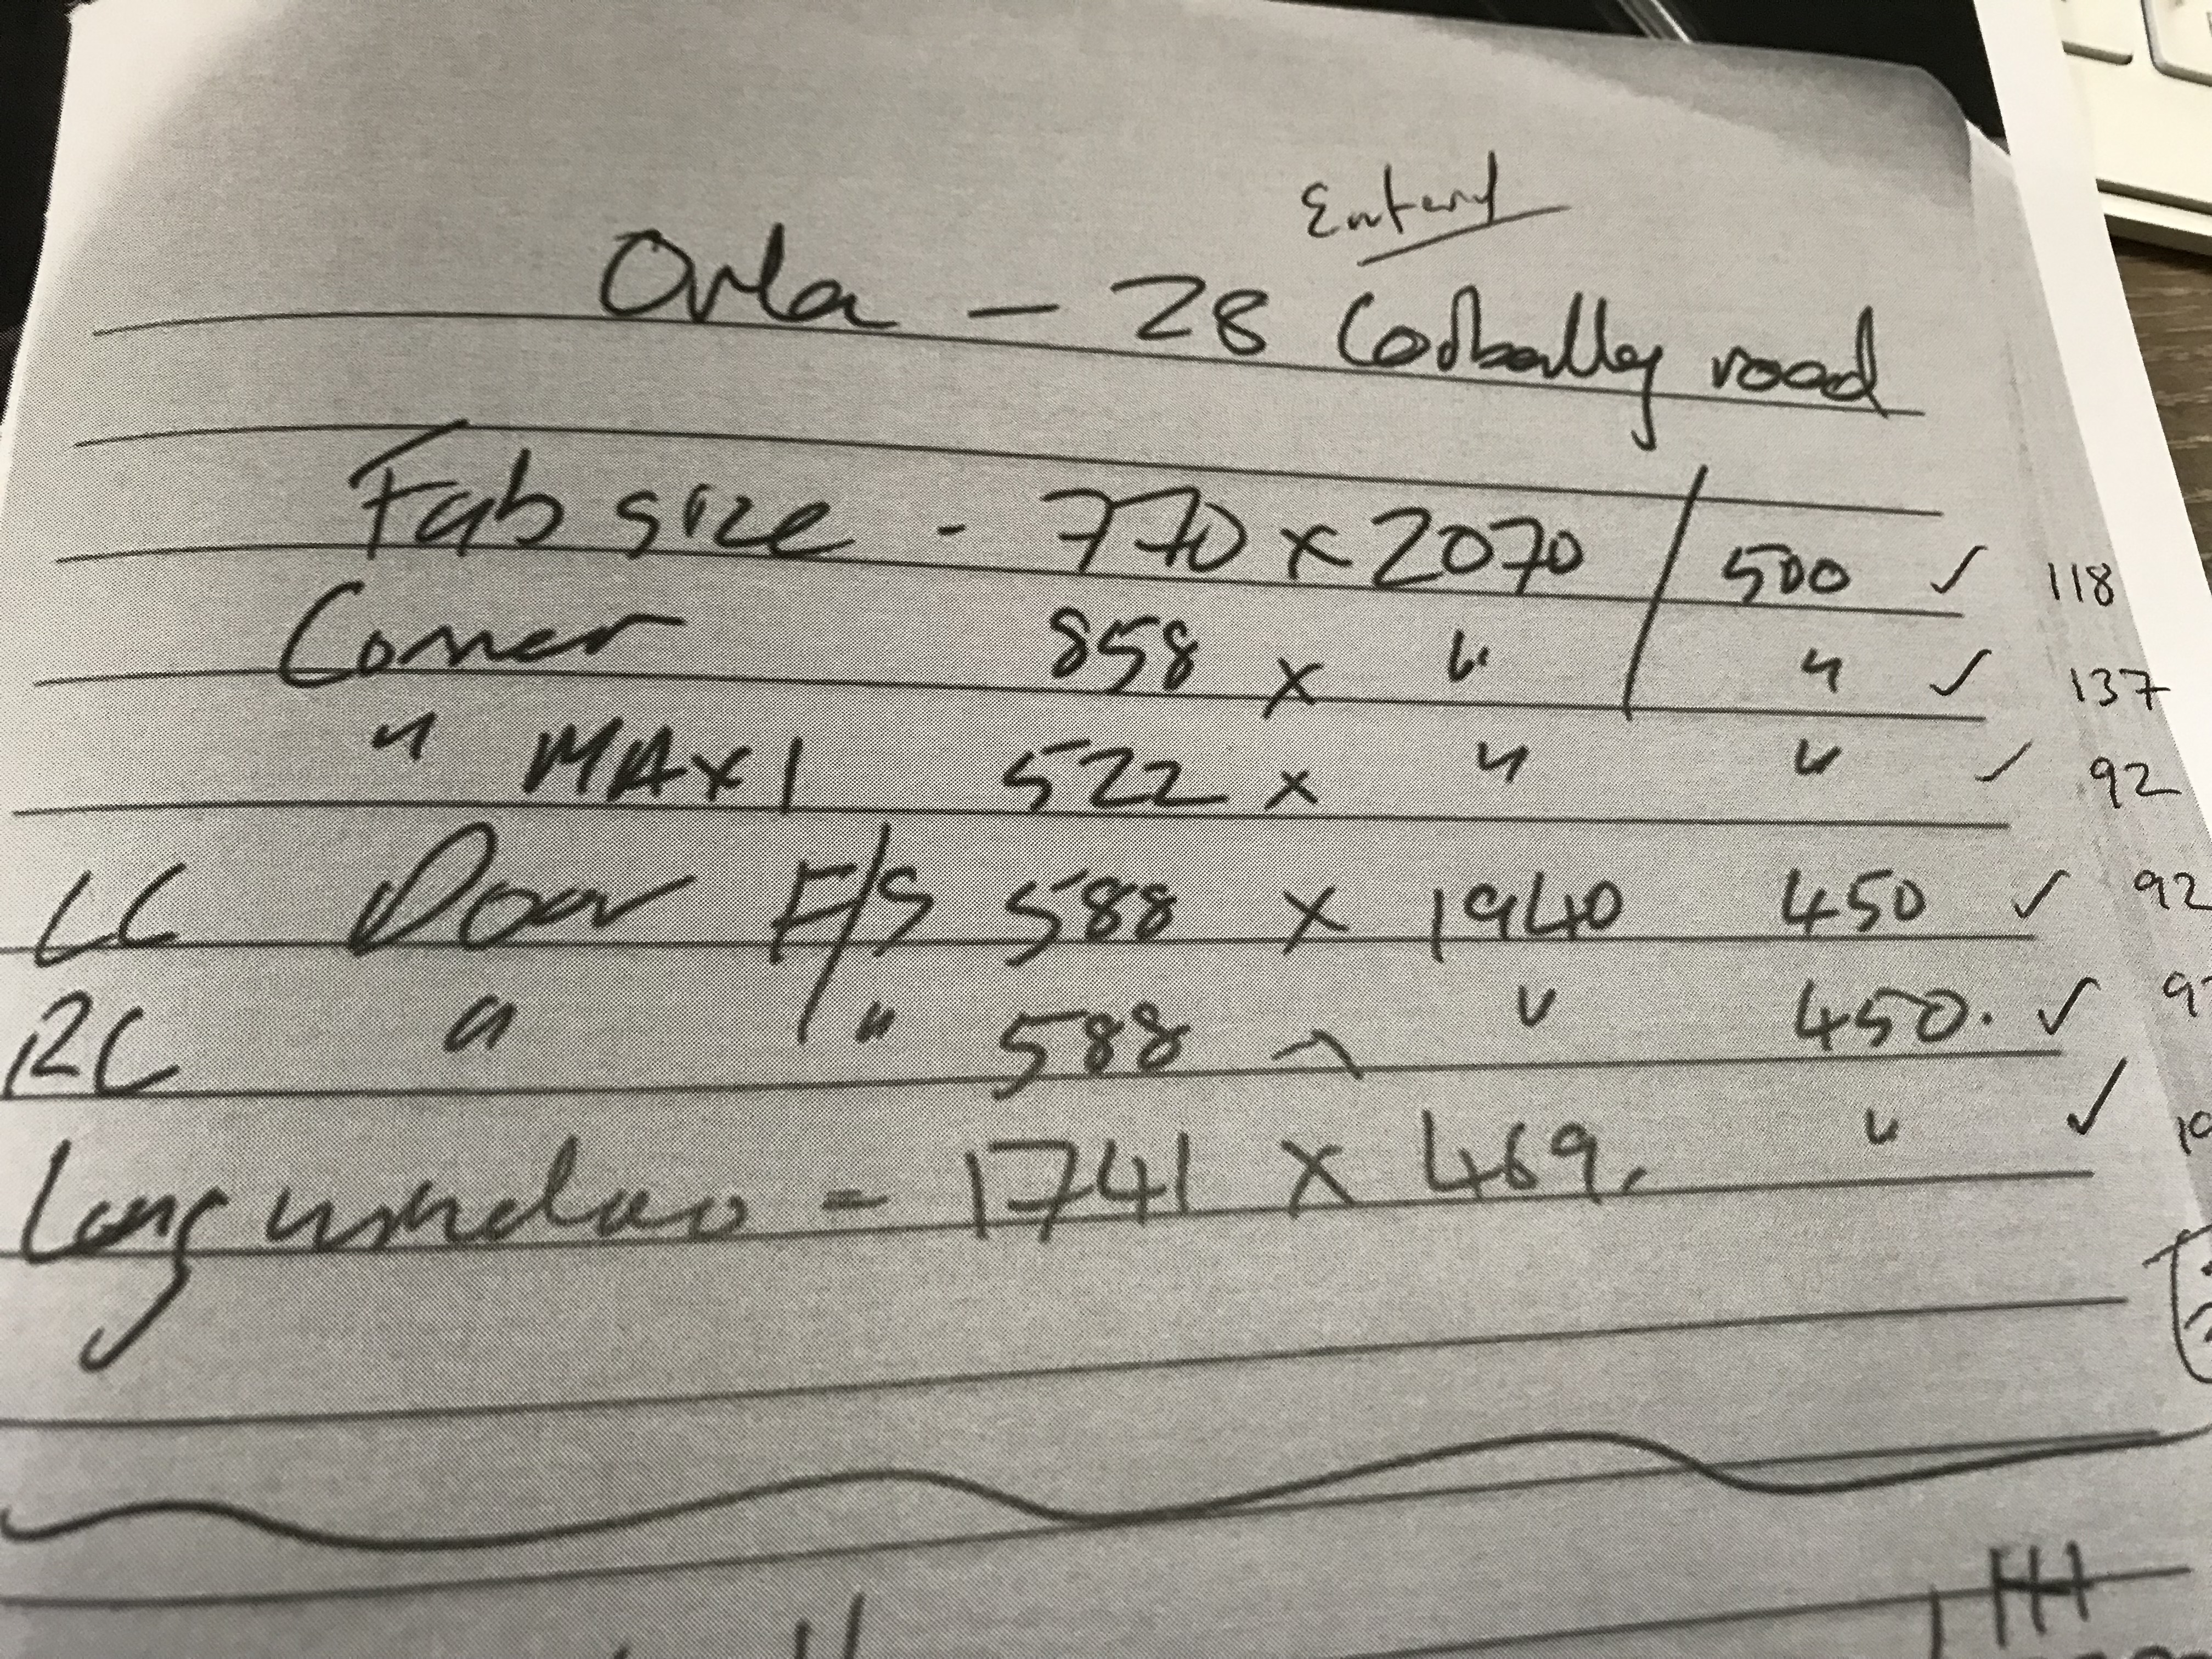 Orla - 28 road
Fab size - 770 x 2070 / 500 ✓ 118
Corner 858 x " " ✓ 137
" MAXI 522 x " " ✓ 92
LC Door F/S 588 x 1940 450 ✓ 92
RC " " 588 x " 450. ✓
Long window = 1741 x 469. " ✓